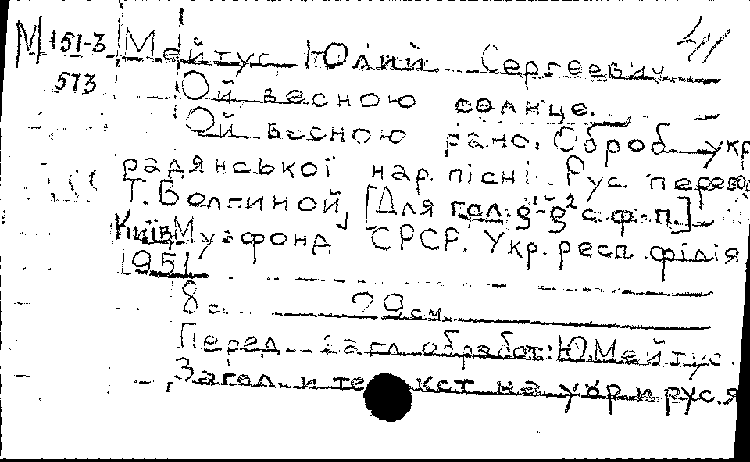 М 151-3 Мейтус, Юлий Сергеевич
573 Ой весною солнце.
Ой весною рано. Оброб. укр
радянської нар. пісні. Рус. перевод
Т. Волгиной, [Для гол. g¹-g² с ф-п.]
Київ, Музфонд СРСР. Укр. респ. філія
1951
8 с. 29 см.
Перед загл. обработ.: Ю. Мейтус.
Загол. и текст на укр и рус. я